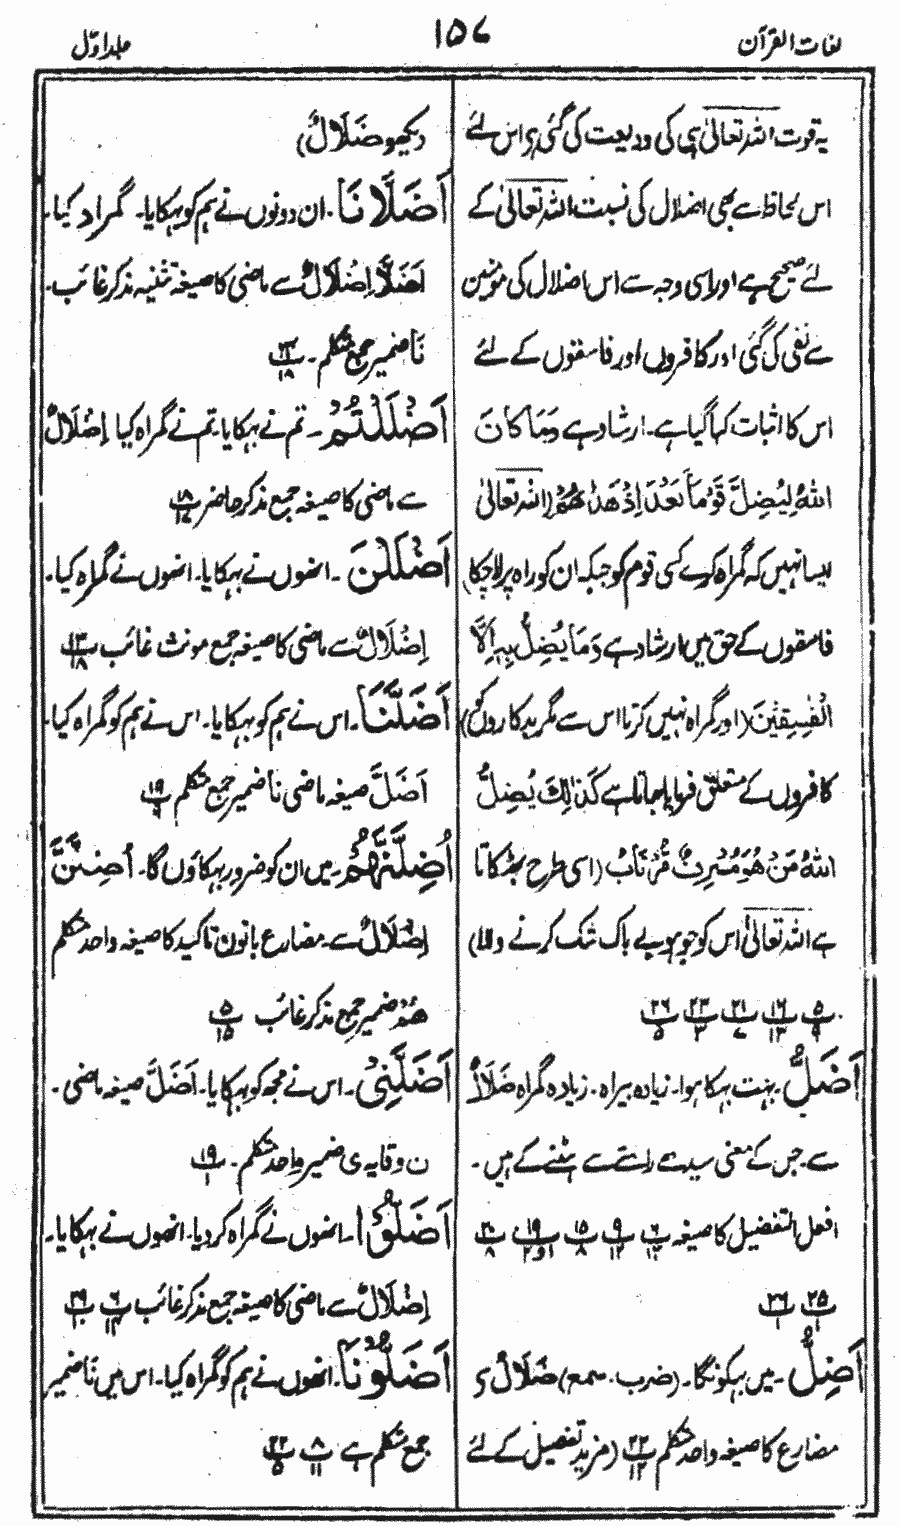 لغات القرآن
۱۵۷
جلد اوّل
یہ قوت اللہ تعالیٰ ہی کی ودیعت کی گئی ہے اس لئے
اس لحاظ سے بھی اضلال کی نسبت اللہ تعالیٰ کے
لئے صحیح ہے اور اسی وجہ سے اس اضلال کی مؤمنین
سے نفی کی گئی اور کافروں اور فاسقوں کے لئے
اس کا اثبات کیا گیا ہے۔ ارشاد ہے وَمَا كَانَ
اللهُ لِيُضِلَّ قَوْمًا بَعْدَ اِذْ هَدٰىهُمْ (اللہ تعالیٰ
ایسا نہیں کہ گمراہ کرے کسی قوم کو جبکہ ان کو راہ پر لا چکا)
فاسقوں کے حق میں ارشاد ہے وَمَا يُضِلُّ بِهٖ اِلَّا
الْفٰسِقِيْنَ (اور گمراہ نہیں کرتا اس سے مگر بدکاروں کو)
کافروں کے متعلق فرمایا جاتا ہے كَذٰلِكَ يُضِلُّ
اللهُ مَنْ هُوَ مُسْرِفٌ مُّرْتَابُ (اسی طرح بھٹکاتا
ہے اللہ تعالیٰ اس کو جو ہو بے باک شک کرنے والا)
۵/۹ ۱۶/۱۳ ۲۱/۷ ۲۳/۳ ۲۶/۵
اَضَلُّ۔ بہت بہکا ہوا۔ زیادہ بیراہ۔ زیادہ گمراہ ضَلَالٌ
سے۔ جس کے معنی سیدھے راستے سے ہٹنے کے ہیں۔
افعل التفضیل کا صیغہ ۶/۱۲ ۹/۱۲ ۱۵/۸ ۱۹/۱و۲ ۲۰/۸
۲۵/۱ ۲۶/۱
اَضِلُّ۔ میں بہکونگا۔ (ضرب۔ سمع) ضَلَالٌ سے
مضارع کا صیغہ واحد متکلم ۲۲/۱۲ (مزید تفصیل کے لئے
دیکھو ضَلَالٌ)
اَضَلَّانَا۔ ان دونوں نے ہم کو بہکایا۔ گمراہ کیا۔
اَضَلَّا اِضْلَالٌ سے ماضی کا صیغہ تثنیہ مذکر غائب۔
نَا ضمیر جمع متکلم۔ ۲۴/۱۸
اَضْلَلْتُمْ۔ تم نے بہکایا۔ تم نے گمراہ کیا اِضْلَالٌ
سے ماضی کا صیغہ جمع مذکر حاضر ۱۸/۱۷
اَضْلَلْنَ۔ انھوں نے بہکایا۔ انھوں نے گمراہ کیا۔
اِضْلَالٌ سے ماضی کا صیغہ جمع مونث غائب ۱۳/۱۸
اَضَلَّنَا۔ اس نے ہم کو بہکایا۔ اس نے ہم کو گمراہ کیا۔
اَضَلَّ صیغہ ماضی نا ضمیر جمع متکلم ۱۹/۹
اُضِلَّنَّهُمْ۔ میں ان کو ضرور بہکاؤں گا۔ اُضِلَّنَّ
اِضْلَالٌ سے۔ مضارع بانون تاکید کا صیغہ واحد متکلم
هُمْ ضمیر جمع مذکر غائب ۵/۱۵
اَضَلَّنِیْ۔ اس نے مجھ کو بہکایا۔ اَضَلَّ صیغہ ماضی۔
ن وقایہ ی ضمیر واحد متکلم۔ ۱۹/۱
اَضَلُّوْا۔ انھوں نے گمراہ کر دیا۔ انھوں نے بہکایا۔
اِضْلَالٌ سے ماضی کا صیغہ جمع مذکر غائب ۶/۳ ۲۹/۱۰
اَضَلُّوْنَا۔ انھوں نے ہم کو گمراہ کیا۔ اس میں نَا ضمیر
جمع متکلم ہے ۸/۱۱ ۲۲/۵